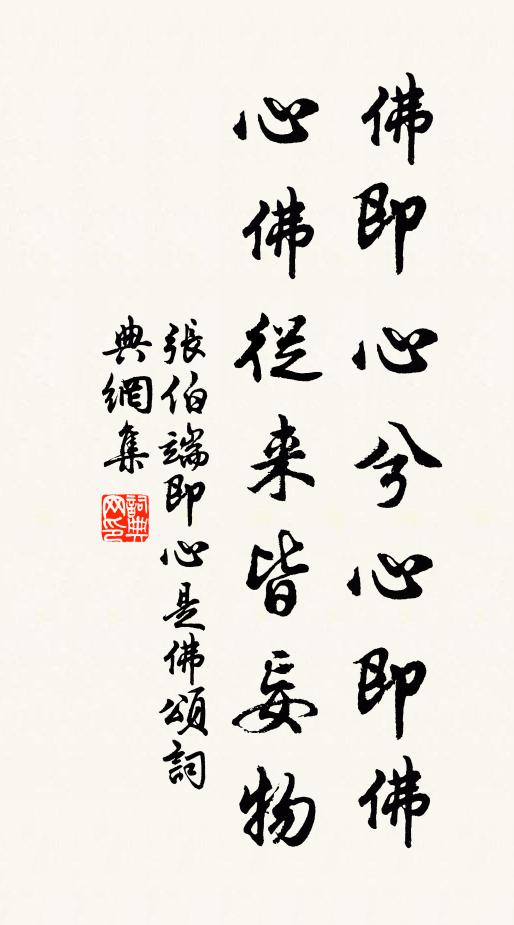 佛即心兮心即佛
心佛從来皆妄物
張伯端即心是佛頌詞
典網集
詞典网印